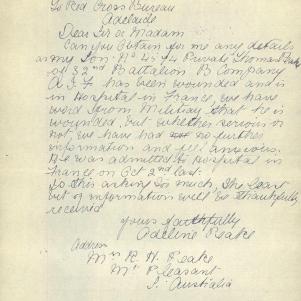 To Red Cross Bureau
Adelaide
Dear Sir or Madam
Can you obtain for me any details
as my Son. No 4574 Private Thomas Peake
of 32nd Battalion B Company
A.I.F has been wounded and is
in Hospital in France, we have
word from Melitary that he is
wounded, but whether serious or
not, we have had no further
information and feel anxious.
He was admitted to Hospital in
France on Oct 2nd last.
Is this asking to much, the least
bit of information will be thankfully
received
yours faithfully
Adeline Peake
Address
Mrs R. H. Peake
Mt Pleasant
S. Australia